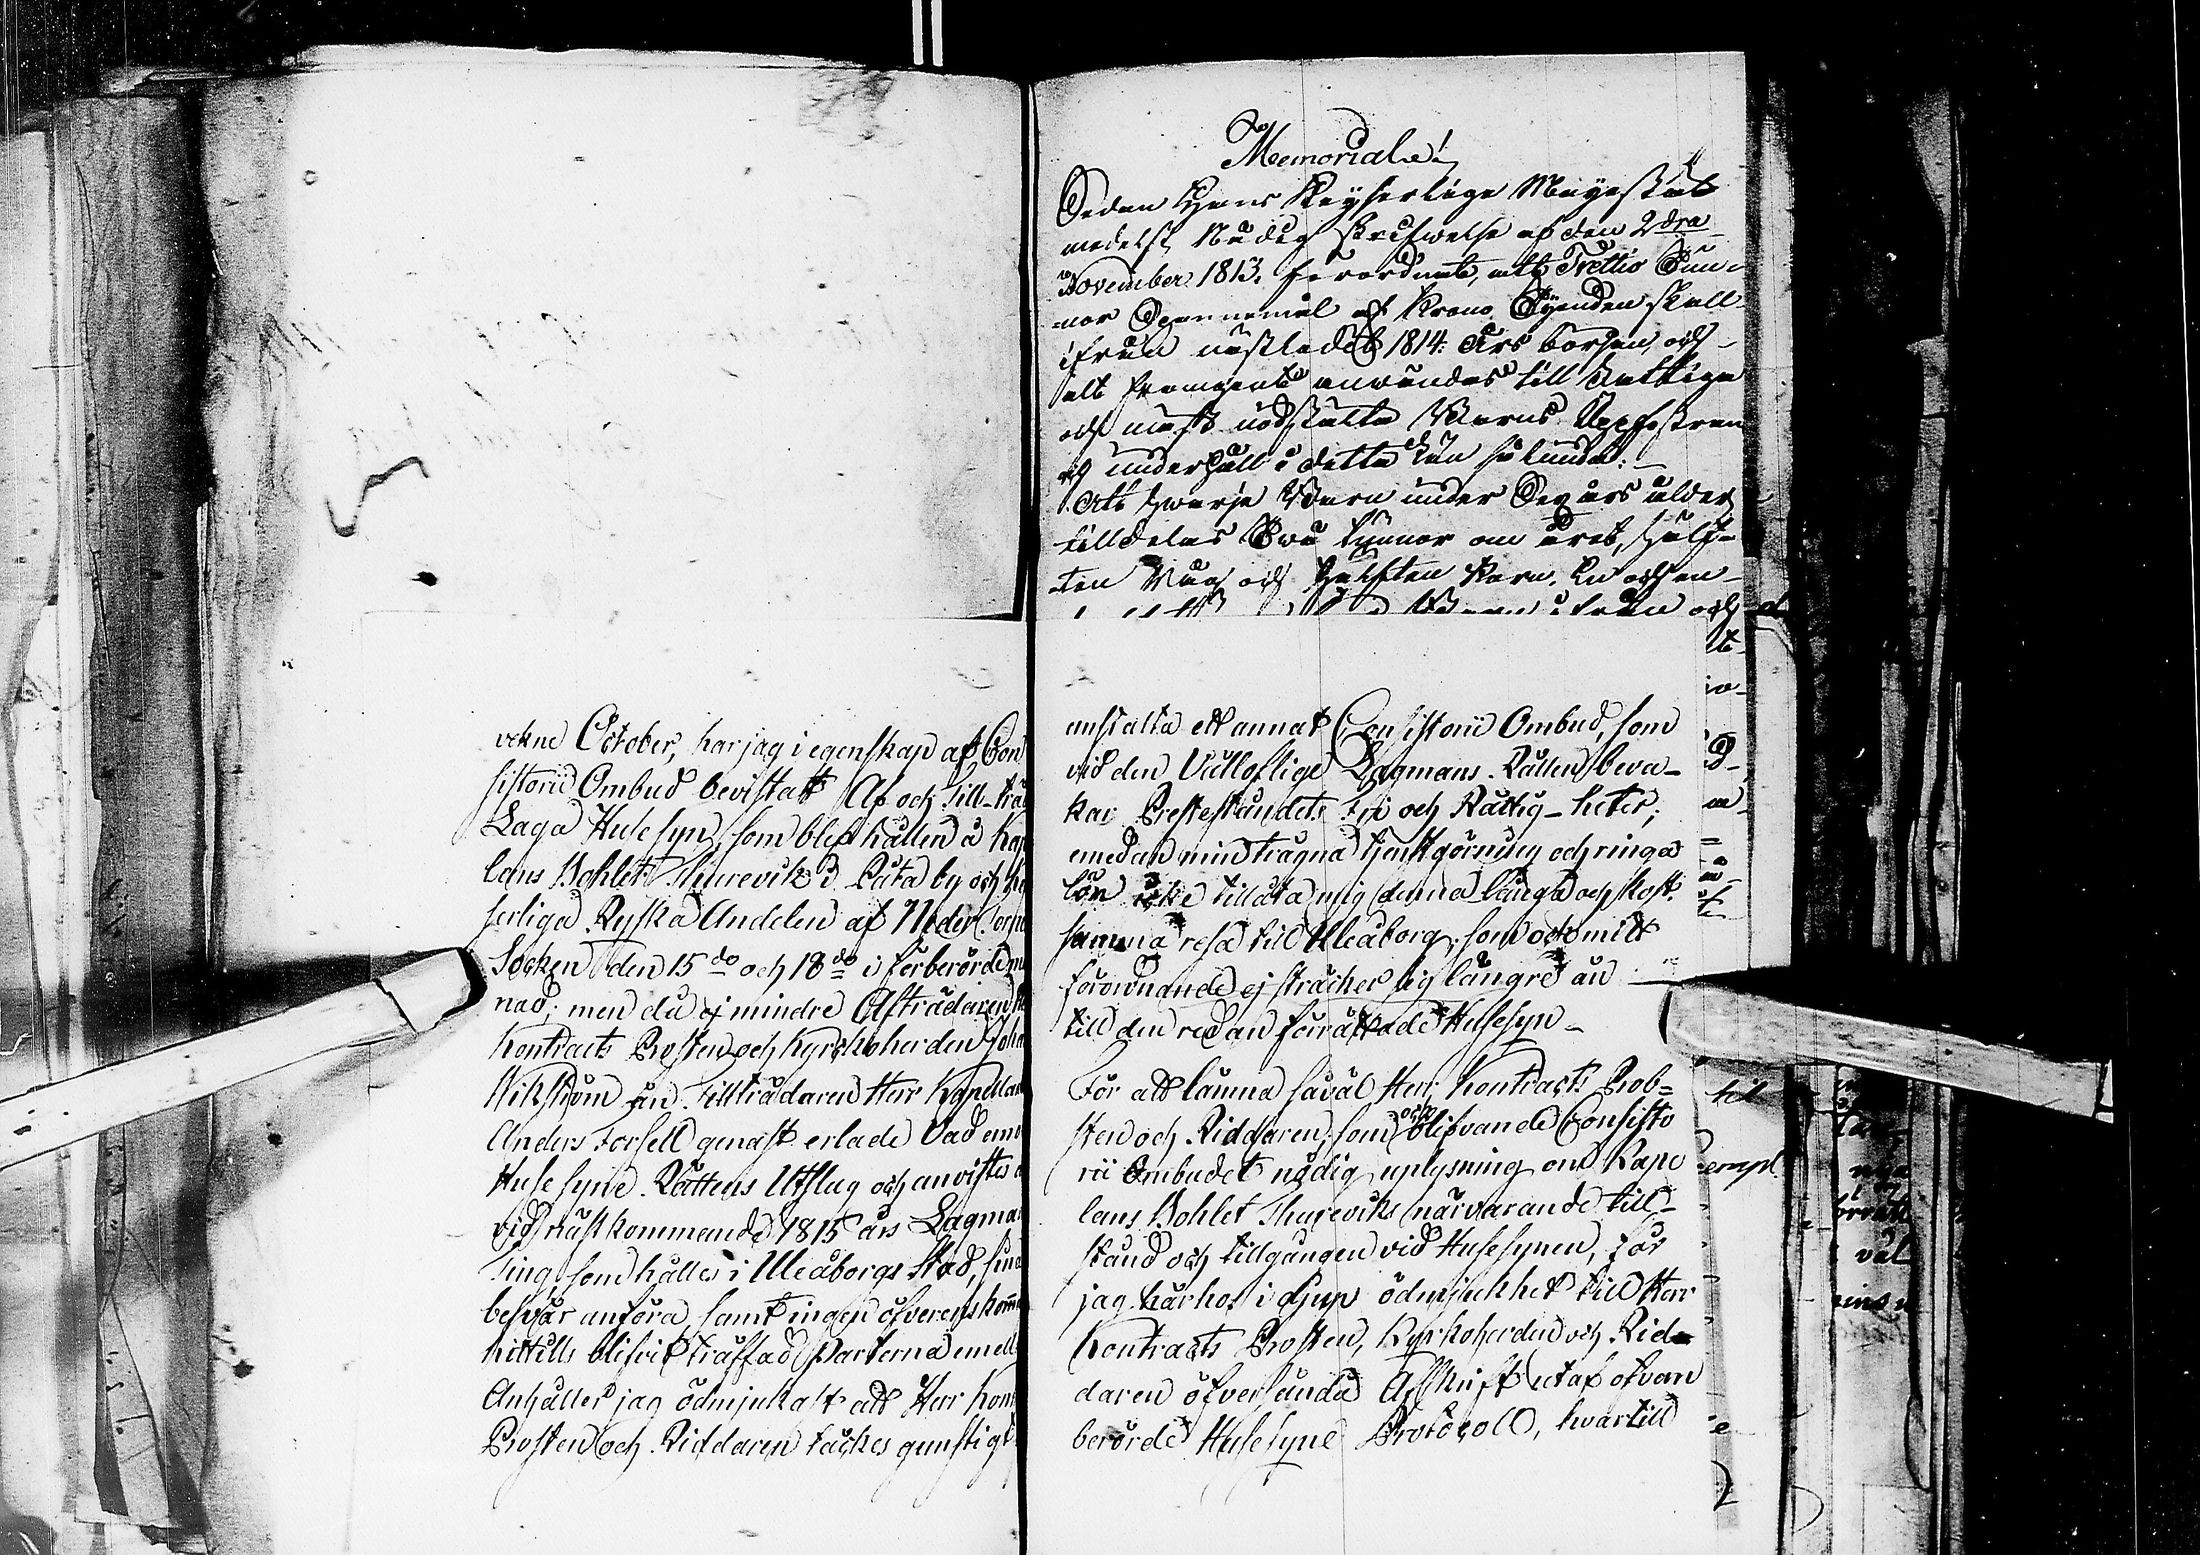 Memorial!
Sedan Hans Keyserlige Mayestät
medelst Nådig skrifwelse af den 2dra
November 1813. förordnat, att Trettio Tun-
nor Spannemål af Krono Tyenden skall
ifrån nästledit 1814. Års början, och
alt framgent användas till Fattige
och mäst nödstälte Barns Uppfostran
och underhåll i detta Län sålunda:
Att hwarje Barn under Sex års ålder
tilldelas Två tunnor om året, hälf-
ten Råg och hälften Korn. En och en-
Barn ifrån och
vekne October, har jag i egenskap af Con
sistorii Ombud bevistatt Af och Till-träd
Laga Husesyn, som blef hållen å Kap
lans Bohlet Thurevik i Pata by och Ke
serliga Ryska Andelen af Neder Torne
Socken den 15de och 18de i förberörde må
nad; men då ej mindre Afträdaren He
Kontracts Prosten och Kyrckoherden Joha
Wikström än Tillträdaren Herr Kapellan
Anders Forsell genast erlade Vad emo
Husesyne Rättens Utslag och anvistes a
vid nästkommande 1815 års Lagma
Ting, som hålles i Uleåborgs Stad, sina
besvär anföra, samt ingen öfverenskomm
hittills blifvit träffad Parterna emell
Anhåller jag ödmjukast att Herr Kont
Prosten och Riddaren täckes gunstigt
anstalta ett annat Consistorii Ombud, som
vid den Vällofliga Lagmans Rätten beva-
kar Prestestandets Fri och Rättig-heter;
emedan min trägna tjenstgöruing och ringa
lön icke tillåta mig denna långa och kost-
samma resa till Uleåborg, som ock mitt
förordnande ej sträcker sig längre än
till den redan förrättade Husesyn-
För att lämna såväl Herr Kontracts Prob-
sten och Riddaren, som ock blifvande Consisto
rii Ombudet nödig uplysning om Kape
lans Bohlet Thureviks närvarande till-
stånd och tillgången vid Husesynen, får
jag härhos i djup ödmjukhet till Herr
Kontracts Prosten, Kyrkoherden och Rid-
daren öfversända Afskrift utaf ofvan
berörde Husesyne Protocoll, hvartill